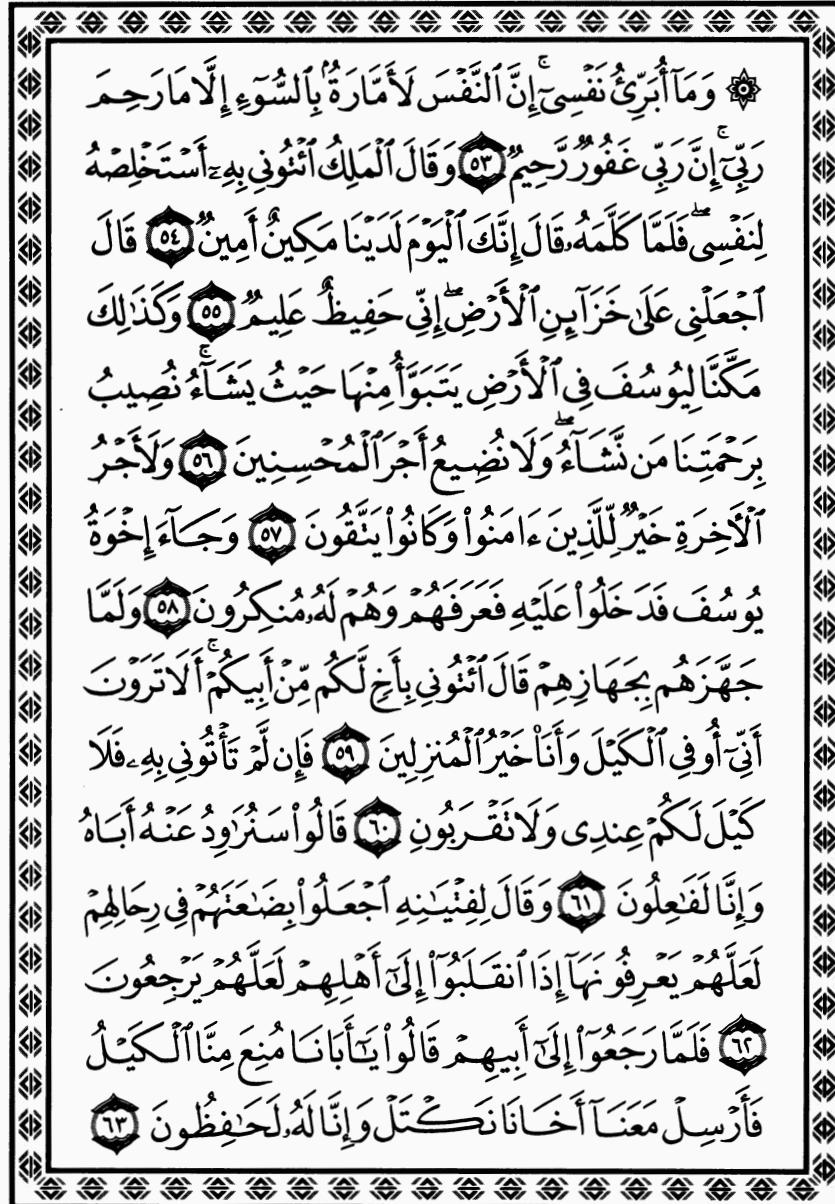 ۞ وَمَآ أُبَرِّئُ نَفْسِيٓۚ إِنَّ ٱلنَّفْسَ لَأَمَّارَةُۢ بِٱلسُّوٓءِ إِلَّا مَا رَحِمَ
رَبِّيٓۚ إِنَّ رَبِّي غَفُورٞ رَّحِيمٞ ٥٣ وَقَالَ ٱلْمَلِكُ ٱئْتُونِي بِهِۦٓ أَسْتَخْلِصْهُ
لِنَفْسِيۖ فَلَمَّا كَلَّمَهُۥ قَالَ إِنَّكَ ٱلْيَوْمَ لَدَيْنَا مَكِينٌ أَمِينٞ ٥٤ قَالَ
ٱجْعَلْنِي عَلَىٰ خَزَآئِنِ ٱلْأَرْضِۖ إِنِّي حَفِيظٌ عَلِيمٞ ٥٥ وَكَذَٰلِكَ
مَكَّنَّا لِيُوسُفَ فِي ٱلْأَرْضِ يَتَبَوَّأُ مِنْهَا حَيْثُ يَشَآءُۚ نُصِيبُ
بِرَحْمَتِنَا مَن نَّشَآءُۖ وَلَا نُضِيعُ أَجْرَ ٱلْمُحْسِنِينَ ٥٦ وَلَأَجْرُ
ٱلْأٓخِرَةِ خَيْرٞ لِّلَّذِينَ ءَامَنُواْ وَكَانُواْ يَتَّقُونَ ٥٧ وَجَآءَ إِخْوَةُ
يُوسُفَ فَدَخَلُواْ عَلَيْهِ فَعَرَفَهُمْ وَهُمْ لَهُۥ مُنكِرُونَ ٥٨ وَلَمَّا
جَهَّزَهُم بِجَهَازِهِمْ قَالَ ٱئْتُونِي بِأَخٖ لَّكُم مِّنْ أَبِيكُمْۚ أَلَا تَرَوْنَ
أَنِّيٓ أُوفِي ٱلْكَيْلَ وَأَنَا۠ خَيْرُ ٱلْمُنزِلِينَ ٥٩ فَإِن لَّمْ تَأْتُونِي بِهِۦ فَلَا
كَيْلَ لَكُمْ عِندِي وَلَا تَقْرَبُونِ ٦٠ قَالُواْ سَنُرَٰوِدُ عَنْهُ أَبَاهُ
وَإِنَّا لَفَٰعِلُونَ ٦١ وَقَالَ لِفِتْيَٰنِهِ ٱجْعَلُواْ بِضَٰعَتَهُمْ فِي رِحَالِهِمْ
لَعَلَّهُمْ يَعْرِفُونَهَآ إِذَا ٱنقَلَبُوٓاْ إِلَىٰٓ أَهْلِهِمْ لَعَلَّهُمْ يَرْجِعُونَ
٦٢ فَلَمَّا رَجَعُوٓاْ إِلَىٰٓ أَبِيهِمْ قَالُواْ يَٰٓأَبَانَا مُنِعَ مِنَّا ٱلْكَيْلُ
فَأَرْسِلْ مَعَنَآ أَخَانَا نَكْتَلْ وَإِنَّا لَهُۥ لَحَٰفِظُونَ ٦٣